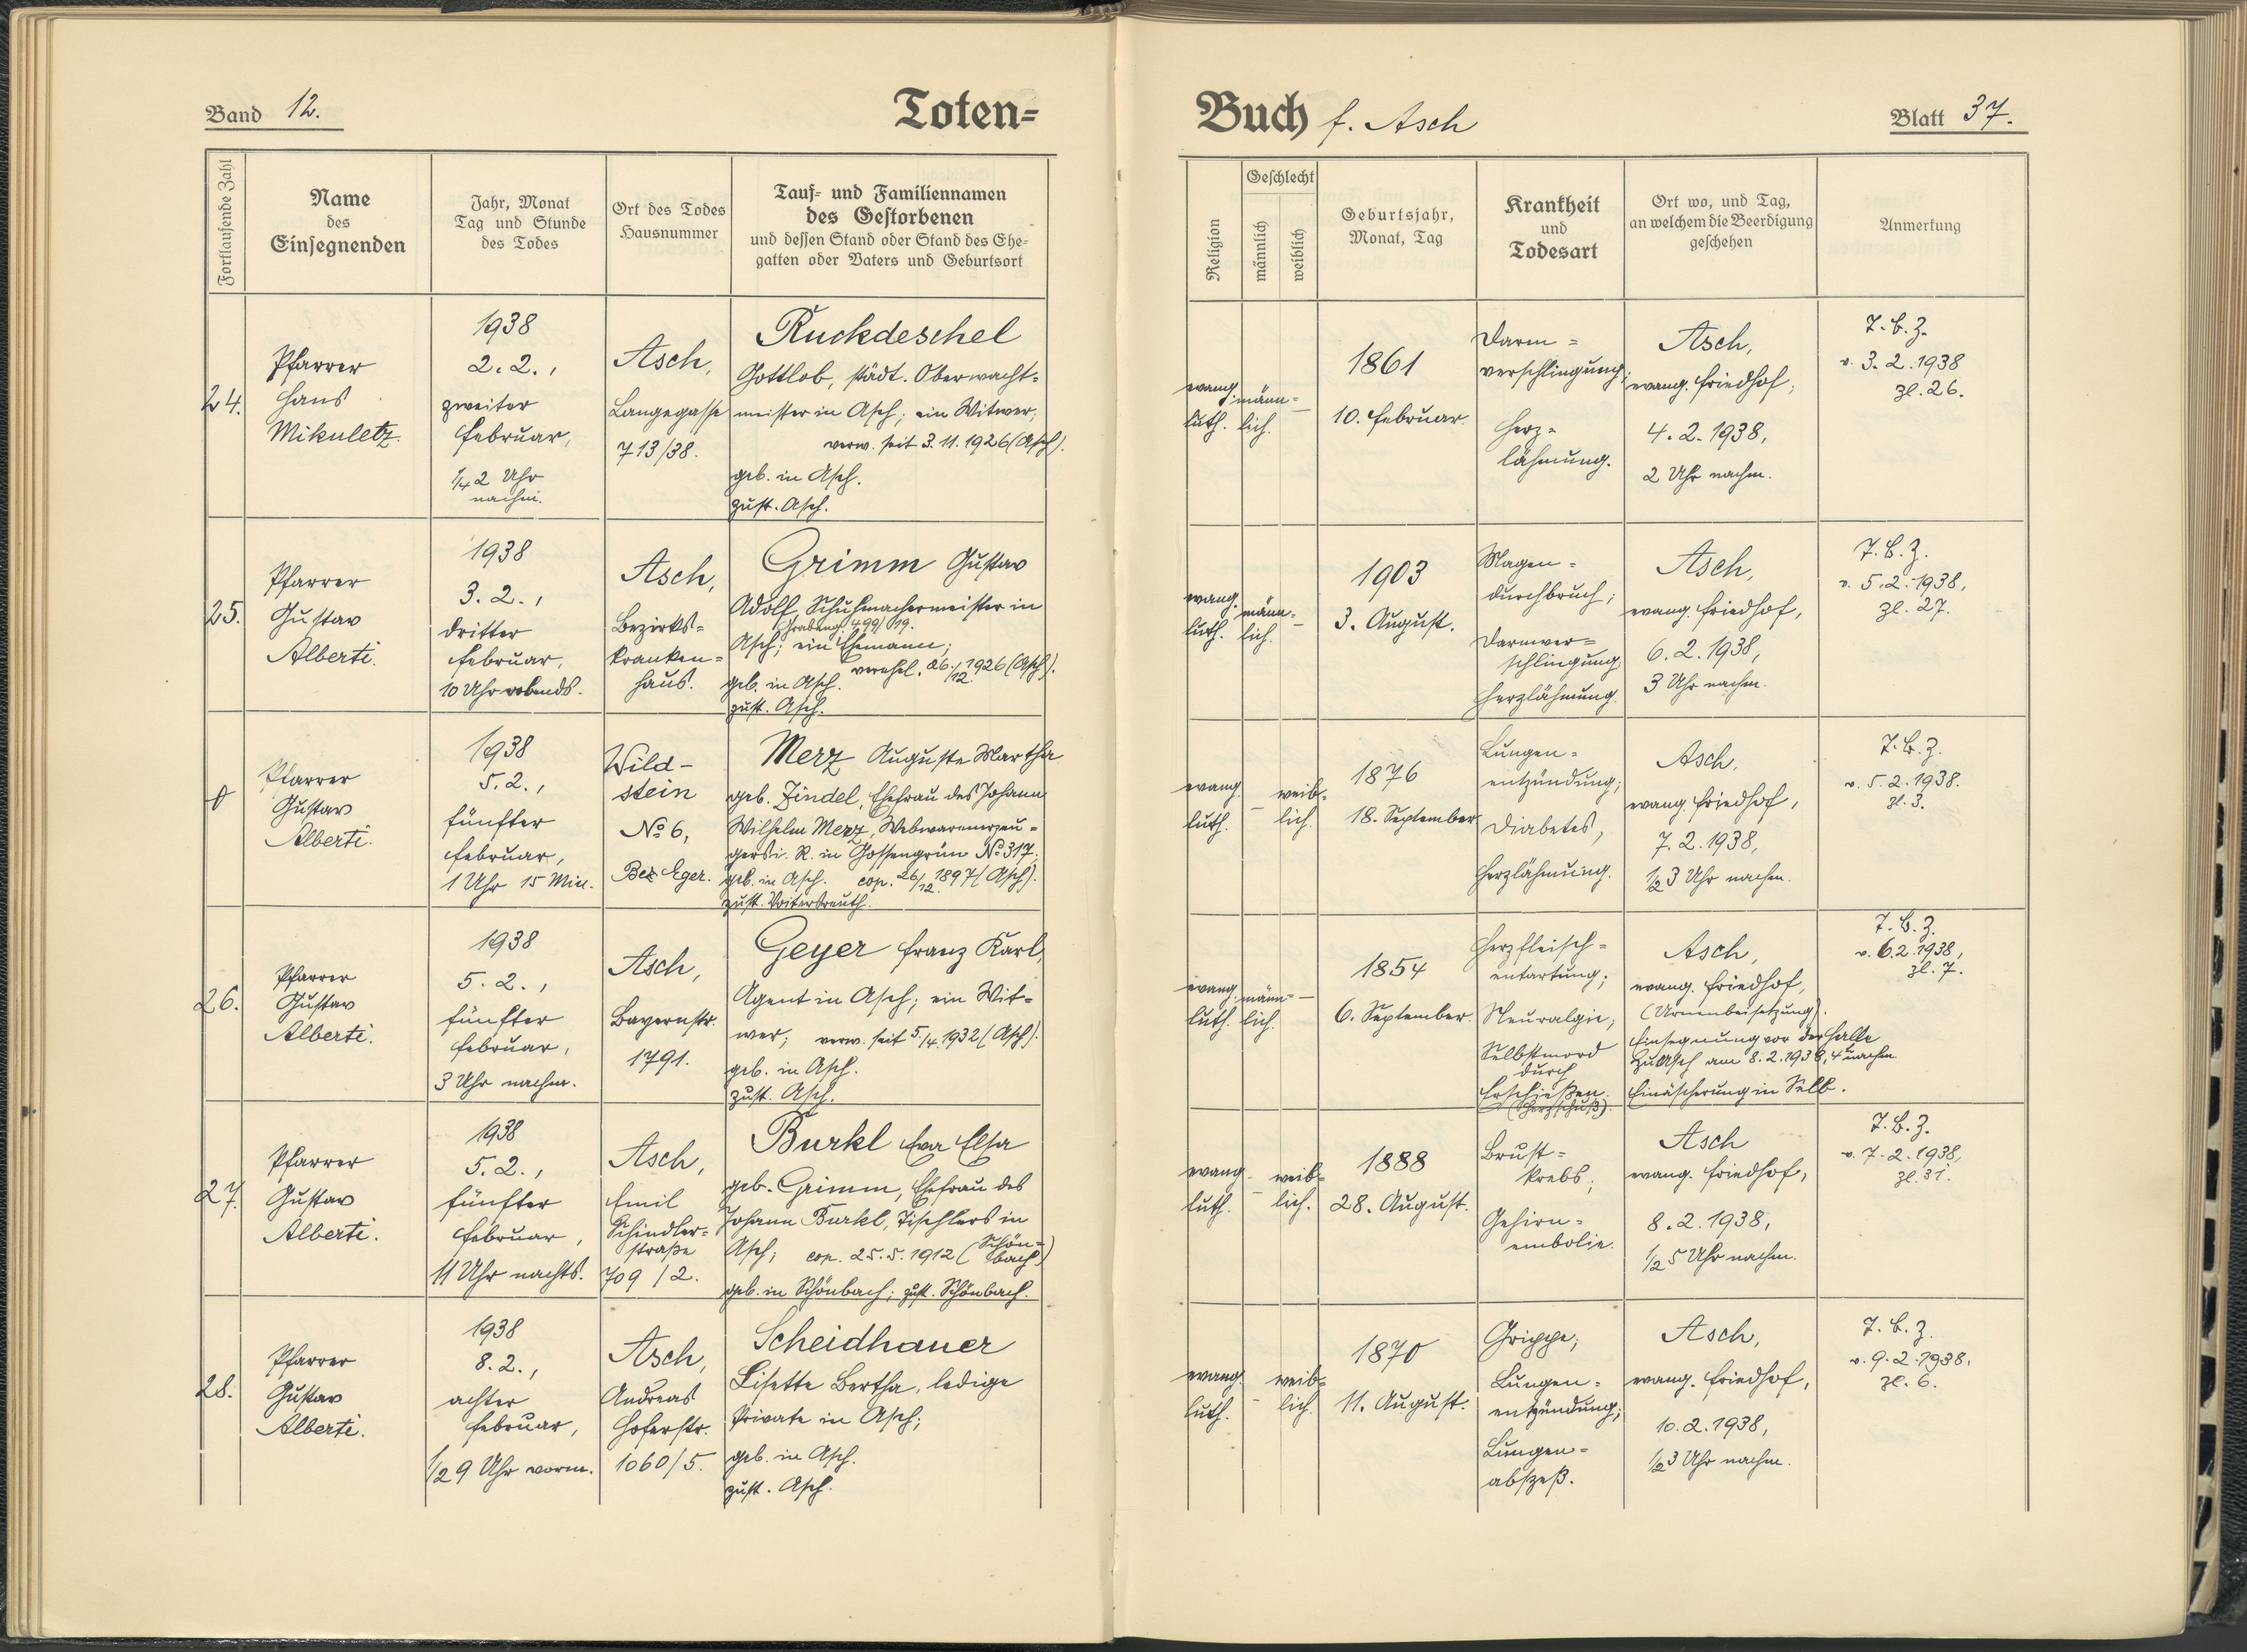 Band 12.
Toten=
Fortlaufende Zahl
Name
des
Einsegnenden
Jahr, Monat
Tag und Stunde
des Todes
Ort des Todes
Hausnummer
Tauf- und Familiennamen
des Gestorbenen
und dessen Stand oder Stand des Ehe-
gatten oder Vaters und Geburtsort
24.
Pfarrer
Hans
Mikuletz.
1938
2.2.,
zweiter
Februar,
1/4 2 Uhr
nachm.
Asch,
Langegasse
713/38.
Ruckdeschel
Gottlob, städt. Oberwacht=
meister in Asch; ein Witwer,
verw. seit 3.11.1926 (Asch).
geb. in Asch.
zust. Asch.
25.
Pfarrer
Gustav
Alberti.
1938
3.2.,
dritter
Februar,
10 Uhr abends.
Asch,
Bezirks=
kranken=
haus.
Grimm Gustav
Adolf, Schuhmachermeister in
(Grabeng. 499/19.
Asch; ein Ehemann;
verehel. 26./12. 1926 (Asch).
geb. in Asch.
zust. Asch.
Pfarrer
Gustav
Alberti.
1938
5.2.,
fünfter
Februar,
1 Uhr 15 Min.
Wild-
stein
No 6,
Bez. Eger.
Merz Auguste Martha
geb. Zindel, Ehefrau des Johann
Wilhelm Merz, Webwarenerzeu=
gers i. R. in Gossengrün No 317;
geb. in Asch. cop. 26/12. 1897 (Asch).
zust. Voitersreuth.
26.
Pfarrer
Gustav
Alberti.
1938
5.2.,
fünfter
Februar,
3 Uhr nachm.
Asch,
Bayernstr.
1791.
Geyer Franz Karl,
Agent in Asch; ein Wit=
wer; verw. seit 5./4.1932 (Asch).
geb. in Asch.
zust. Asch.
27.
Pfarrer
Gustav
Alberti.
1938
5.2.,
fünfter
Februar,
11 Uhr nachts.
Asch,
Emil
Schindler=
straße
709/2.
Burkl Eva Elsa
geb. Grimm, Ehefrau des
Johann Burkl, Tischlers in
Asch; cop. 25.5.1912 (Schön=
bach)
geb. in Schönbach; zust. Schönbach.
28.
Pfarrer
Gustav
Alberti.
1938
8.2.,
achter
Februar,
1/2 9 Uhr vorm.
Asch,
Andreas
Hoferstr.
1060/5.
Scheidhauer
Lisette Bertha, ledige
Private in Asch;
geb. in Asch.
zust. Asch.
Buch f. Asch
Blatt 37.
Religion
Geschlecht
männlich
weiblich
Geburtsjahr,
Monat, Tag
Krankheit
und
Todesart
Ort wo, und Tag,
an welchem die Beerdigung
geschehen
Anmerkung
evang.
luth.
männ=
lich.
–
1861
10. Februar.
Darm=
verschlingung;
Herz=
lähmung.
Asch,
evang. Friedhof;
4.2.1938,
2 Uhr nachm.
T.B.Z.
v. 3.2.1938
Zl. 26.
evang.
luth.
männ=
lich.
–
1903
3. August.
Magen=
durchbruch;
Darmver=
schlingung;
Herzlähmung.
Asch,
evang. Friedhof,
6.2.1938,
3 Uhr nachm.
T.B.Z.
v. 5.2.1938,
Zl. 27.
evang.
luth.
–
weib=
lich.
1876
18. September.
Lungen=
entzündung;
Diabetes,
Herzlähmung.
Asch,
evang. Friedhof,
7.2.1938,
1/2 3 Uhr nachm.
T.B.Z.
v. 5.2.1938.
Zl. 3.
evang.
luth.
männ=
lich.
–
1854
6. September.
Herzfleisch=
entartung;
Neuralgie;
Selbstmord
durch
Erschießen.
(Herzschuß).
Asch,
evang. Friedhof,
(Urnenbeisetzung).
Einsegnung vor der Halle
zu Asch am 8.2.1938, 4 U nachm
Einäscherung in Selb.
T.B.Z.
v. 6.2.1938,
Zl. 7.
evang.
luth.
–
weib=
lich.
1888
28. August.
Brust=
krebs;
Gehirn=
embolie.
Asch
evang. Friedhof,
8.2.1938,
1/2 5 Uhr nachm.
T.B.Z.
v. 7.2.1938,
Zl. 31.
evang.
luth.
–
weib=
lich.
1870
11. August.
Grippe;
Lungen=
entzündung;
Lungen=
abszeß.
Asch,
evang. Friedhof,
10.2.1938,
1/2 3 Uhr nachm.
T.B.Z.
v. 9.2.1938.
Zl. 6.